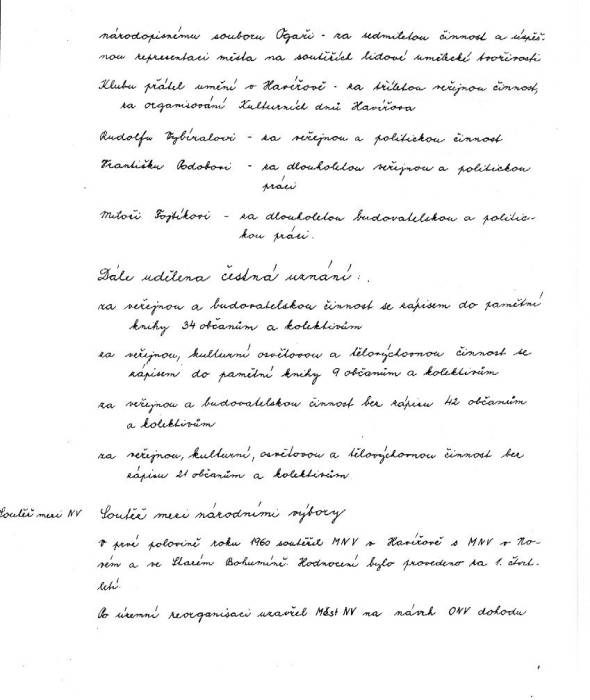 národopisnému souboru Ogaři - za sedmiletou činnost a úspěš-
nou representaci města na soutěžích lidové umělecké tvořivosti
Klubu přátel umění v Havířově - za tříletou veřejnou činnost,
za organisování Kulturních dnů Havířova
Rudolfu Vybíralovi - za veřejnou a politickou činnost
Františku Podobovi - za dlouholetou veřejnou a politickou
práci
Miloši Fojtíkovi - za dlouholetou budovatelskou a politic-
kou práci.
Dále udělena čestná uznání:
za veřejnou a budovatelskou činnost se zápisem do pamětní
knihy 34 občanům a kolektivům
za veřejnou, kulturní osvětovou a tělovýchovnou činnost se
zápisem do pamětní knihy 9 občanům a kolektivům
za veřejnou a budovatelskou činnost bez zápisu 42 občanům
a kolektivům
za veřejnou, kulturní, osvětovou a tělovýchovnou činnost bez
zápisu 21 občanům a kolektivům
Soutěž mezi NV
Soutěž mezi národními výbory
V prvé polovině roku 1960 soutěžil MNV v Havířově s MNV v No-
vém a ve Starém Bohumíně. Hodnocení bylo provedeno za 1. čtvrt-
letí.
Po územní reorganisaci uzavřel Měst NV na návrh ONV dohodu